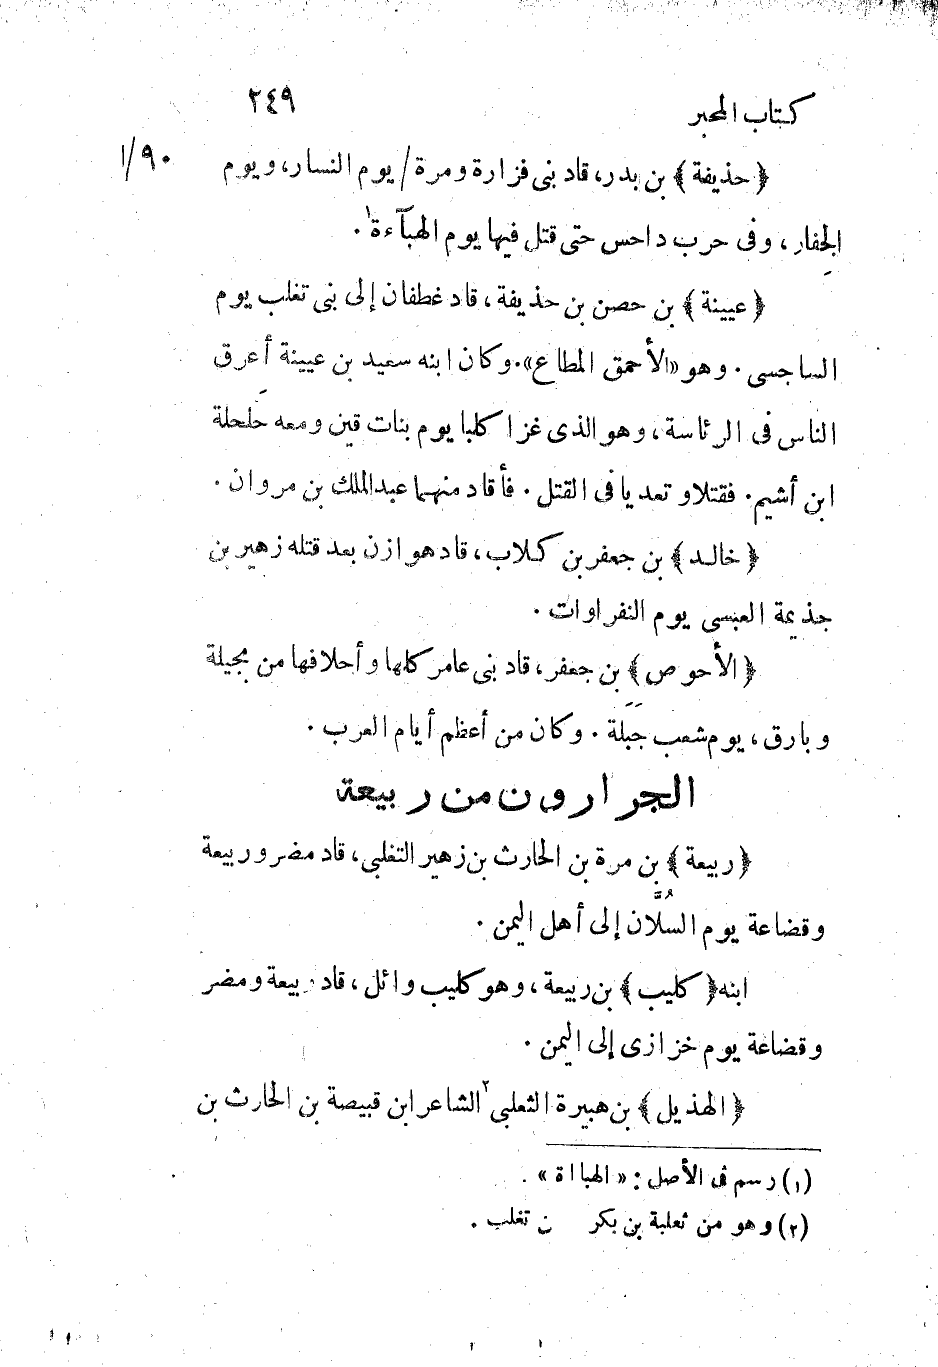 كتاب المحبر ٢٤٩
﴿حذيفة﴾ بن بدر، قاد بنى فزارة ومرة / يوم النسار، ويوم ٩٠/١
الجِفار، وفى حرب داحس حتى قتل فيها يوم الهبآءة١.
﴿عيينة﴾ بن حصن بن حذيفة، قاد غطفان إلى بنى تغلب يوم
الساجسى. وهو «الأحمق المطاع». وكان ابنه سعيد بن عيينة أعرق
الناس فى الرئاسة، وهو الذى غزا كلبا يوم بنات قين ومعه حَلحلة
ابن أشيم. فقتلا وتعديا فى القتل. فأقاد منهما عبدالملك بن مروان.
﴿خالد﴾ بن جعفر بن كلاب، قاد هوازن بعد قتله زهير بن
جذيمة العبسى يوم النفراوات.
﴿الأحوص﴾ بن جعفر، قاد بنى عامر كلها وأحلافها من بجيلة
وبارق، يوم شعب جَبَلة. وكان من أعظم أيام العرب.
الجرارون من ربيعة
﴿ربيعة﴾ بن مرة بن الحارث بن زهير التغلبي، قاد مضر وربيعة
وقضاعة يوم السُلّان إلى أهل اليمن.
ابنه ﴿كليب﴾ بن ربيعة، وهو كليب وائل، قاد ربيعة ومضر
وقضاعة يوم خزازى إلى اليمن.
﴿الهذيل﴾ بن هبيرة الثعلبي٢ الشاعر ابن قبيصة بن الحارث بن
(١) رسم فى الأصل: «الهبااة».
(٢) وهو من ثعلبة بن بكر ن تغلب.